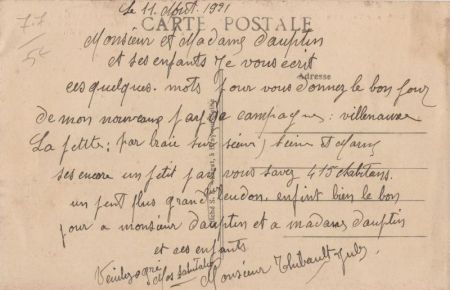 Le 11 Août. 1921
CARTE POSTALE
Monsieur et Madame Dauptin
et ses enfants Je vous écrit
Adresse
ces quelques. mots pour vous donnez le bon jour
de mon nouveaux pays de campagne: villenauxe
La petite; par braie sur seine; seine et Marne
ses encore un petit pays vous savez 415 habitans.
un peut plus grand enfint bien le bon
jour a monsieur dauptin et a madame dauptin
et ses enfants
Veuilez agré Mes salutation
Monsieur Thibault Jules
77